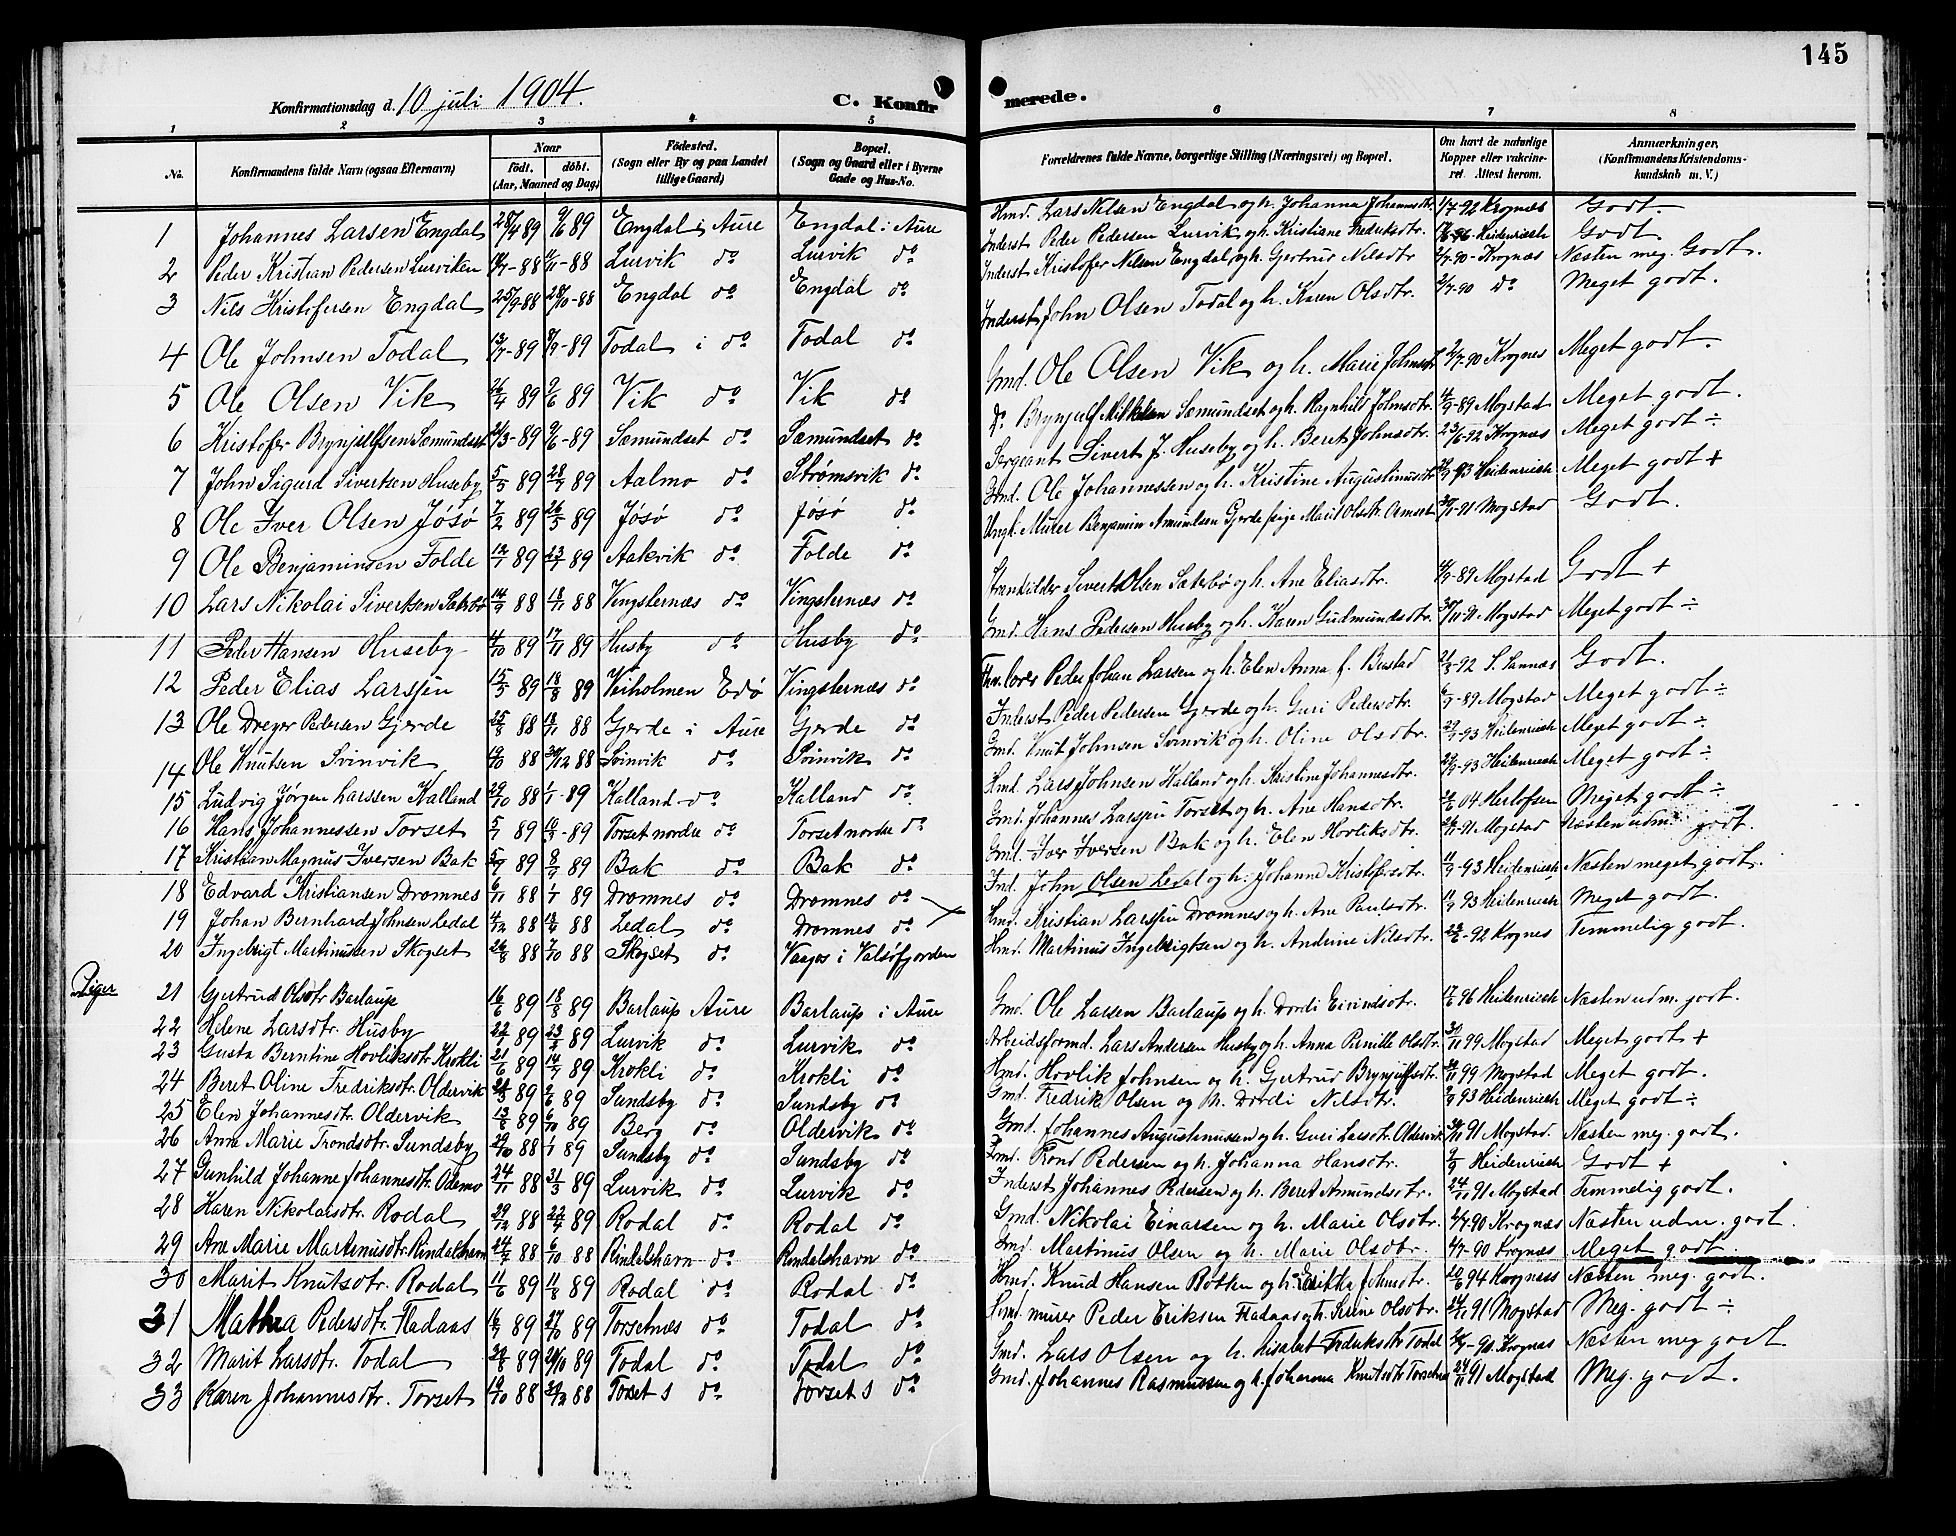 145
Konfirmationsdag d. 10 juli 1904.
C. Konfir merede.
1 2 3 4 5 6 7 8
No. Konfirmandens fulde Navn (ogsaa Efternavn) Naar födt. döbt. (Aar, Maaned og Dag) Födested. (Sogn eller By og paa Landet tillige Gaard) Bopæl. (Sogn og Gaard eller i Byerne Gade og Hus-No. Forældrenes fulde Navne, borgerlige Stilling (Næringsvei) og Bopæl. Om havt de naturlige Kopper eller vakcineret. Attest herom. Anmærkninger, (Konfirmandens Kristendomskundskab m. V.)
1 Johannes Larsen Engdal 28/4 89 9/6 89 Engdal i Aure Engdal i Aure Hmd. Lars Nilsen Engdal og h. Johanna Johannesdtr. 1/7-92 Krognæs Godt.
2 Peder Kristian Pedersen Lurviken -88 -88 Lurvik do Lurvik do Inderst Peder Pedersen Lurvik og h. Kristiane Fredriksdtr. -96 Heidenreich Godt.
3 Nils Kristofersen Engdal 25/9-88 28/10-88 Engdal do Engdal do Inderst Kristofer Nilsen Engdal og h. Gertrud Nilsdtr 2/7-90 - Krognæs Næsten meg. Godt.
4 Ole Johnsen Todal -89 -89 Todal i do Todal do Inderst John Olsen Todal og h. Karen Olsdtr. 2/7-90 do Meget godt.
5 Ole Olsen Vik 26/4 89 9/6 89 Vik do Vik do Gmd. Ole Olsen Vik og h. Marie Johnsdtr 2/7-90 Krognes Meget godt.
6 Kristofer Brynjulfsen Sæmundset -89 9/6-89 Sæmundset do Sæmundset do do Brynjulf Mikkelsen Sæmundset og h. Ragnhild Johnsdtr. -89 Mogstad Meget godt.
7 John Sigurd Sivertsen Huseby 5/5 89 28/7 89 Aalmo do Strømsvik do Sergeant Sivert J. Huseby og h. Beret Johnsdtr. 23/6-92 Krognæs Meget godt ÷
8 Ole Iver Olsen Jøsø 7/2 89 26/5 89 Jøsø do Jøsø do Gmd. Ole Johannessen og h. Kristine Augustinusdtr 93 Heidenreich Meget godt +
9 Ole Benjaminsen Folde 89 89 Aakvik do Folde do Ungk. Murer Benjamin Amundsen Gjerde pige Marit Olsdtr -91 Mogstad Godt.
10 Lars Nikolai Sivertsen Sætrbø 14/9 88 18/11 88 Vingsternæs do Vingsternæs do Strandsidder Sivert Olsen Sætrbø og h. Ane Eliasdtr. -89 Mogstad Godt +
11 Peder Hansen Huseby 4/10 89 17/11 89 Husby do Husby do Gmd. Hans Pedersen Husby og h. Karen Gudmundsdtr. 30/11-91 Mogstad Meget godt ÷
12 Peder Elias Larssen 15/5 89 18/8 89 Veiholmen Edø Vingsternæs do Peder Johan Larsen og h. Elen Anna f. Bustad -92 Godt.
13 Ole Dreyer Pedersen Gjerde 25/8 88 88 Gjerde i Aure Gjerde do Inderst Peder Pedersen Gjerde og h. Guri Pedersdtr -89 Mogstad Meget godt ÷
14 Ole Knutsen Svinvik 19/10 88 30/12 88 Svinvik do Svinvik do Gmd. Knut Johnsen Svinvik og h. Oline Olsdtr. -93 Heidenreich Meget godt ÷
15 Ludvig Jørgen Larssen Kalland 29/10 88 1/1-89 Kalland do Kalland do Hmd. Lars Johnsen Kalland og h. Kristine Johannesdtr. -93 Heidenreich Meget godt ÷
16 Hans Johannessen Torset 5/7 89 -89 Torset nordre do Torset nordre do Gmd. Johannes Larssen Torset og h. Ane Hansdtr. 04 Herlofsen Meget godt ÷
17 Kristian Magnus Iversen Bak 89 89 Bak do Bak do Gmd. Iver Iversen Bak og h. Elen Hovliksdtr. -91 Mogstad Næsten udm. godt.
18 Edvard Kristiansen Dromnes 6/11 88 1/1 89 Dromnes do Dromnes do Ind. John Olsen Ledal og h. Johanne Kristofersdtr. -93 Heidenreich Næsten meget godt.
19 Johan Bernhard Johnsen Ledal 88 88 Ledal do Dromnes do Hmd. Kristian Larssen Dromnes og h. Ane Paulsdtr. 93 Heidenreich Meget godt.
20 Ingebrigt Martinussen Skogset 26/8 88 7/10 88 Skogset do Vaagos i Valsøfjorden Hmd. Martinus Ingebrigtsen og h. Andrine Nilsdtr. -92 Krognes Temmelig godt.
Piger
21 Gjertrud Olsdtr Barlaup 16/6 89 18/8 89 Barlaup Aure Barlaup i Aure Gmd. Ole Larsen Barlaup og h. Dordi Eivindsdtr. 17/6 96 Heidenreich Næsten udm. godt.
22 Helene Larsdtr. Husby 89 89 Lurvik do Lurvik do Arbeidsformd. Lars Andersen Husby og h. Anna Pernille Olsdtr. 30/11 99 Mogstad Meget godt +
23 Gusta Berntine Hovliksdtr. Krokli 21/6 89 14/7 89 Krokli do Krokli do Hmd. Hovlik Johnsen og h. Gjertrud Brynjulfsdtr. 99 Mogstad Meget godt.
24 Beret Oline Fredriksdtr. Oldervik 89 89 Sundsby do Sundsby do Gmd. Fredrik Olsen og h. Dordi Nilsdtr. 93 Heidenreich Meget godt ÷
25 Elen Johannesdtr. Oldervik 13/8 89 6/10 89 Berg do Oldervik do Gmd. Johannes Augustinussen og h. Guri Larsdtr. Oldervik 91 Mogstad. Næsten meg. godt.
26 Ane Marie Trondsdtr. Sundsby 29/10 88 1/1 89 Sundsby do Sundsby do Gmd. Trond Pedersen og h. Johanna Hansdtr. Heidenreich Godt +
27 Gunhild Johanne Johannesdtr. Odemo 24/11 88 31/3 89 Lurvik do Lurvik do Inderst Johannes Pedersen og h. Beret Amundsdtr. 24/11 91 Mogstad Temmelig godt.
28 Karen Nikolaisdtr. Rodal 29/12 88 22/4 89 Rodal do Rodal do Gmd. Nikolai Einarsen og h. Marie Olsdtr. 4/7-90 Krognæs Næsten udm. godt.
29 Ane Marie Martinusdtr. Rindalshavn 88 6/10 88 Rindalshavn do Rindalshavn do Gmd Martinus Olsen og h. Marie Olsdtr. 4/7-90 Krognæs Meget godt.
30 Marit Knutsdtr. Rodal 11/6 89 11/8 89 Rodal do Rodal do Hmd. Knud Hansen Rotten og h. Johnsdtr. 94 Krogness Næsten meg. godt.
31 Mathea Pedersdtr. Fladaas 16/9 89 27/10 89 Torsetnæs do Todal do Hmd. murer Peder Eriksen Fladaas og h. Serine Olsdtr. 91 Mogstad Meg. godt ÷
32 Marit Larsdtr. Todal 89 89 Todal do Todal do Gmd. Lars Olsen og h. Lisabet Fredriksdtr Todal -90 Krognæs Næsten meg godt
33 Karen Johannesdtr. Torset 19/10 88 88 Torset s do Torset s do Gmd. Johannes Rasmussen og h. Johanna Knutsdtr 24/11 91 Mogstad Meg. godt.